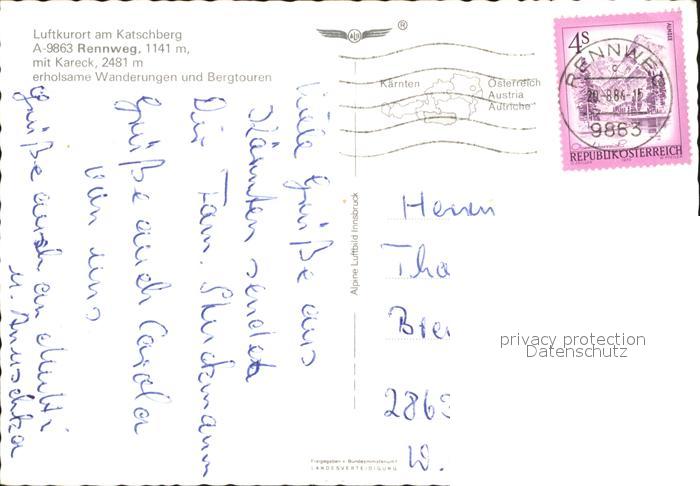 Luftkurort am Katschberg
A-9863 Rennweg, 1141 m,
mit Kareck, 2481 m
erholsame Wanderungen und Bergtouren
ALI
®
Kärnten
Österreich
Austria
Autriche
4S
ALMSEE
REPUBLIK ÖSTERREICH
RENNWEG
20.-8.84-15
9863
Viele Grüße aus
Kärnten sendet
Dir Fam.
Grüße auch Carola
von uns
Grüße auch an Mutti
u. Anuschka
Alpine Luftbild Innsbruck
Herrn
Tho
Bre
2863
W.
privacy protection
Datenschutz
Freigegeben v. Bundesministerium f.
LANDESVERTEIDIGUNG